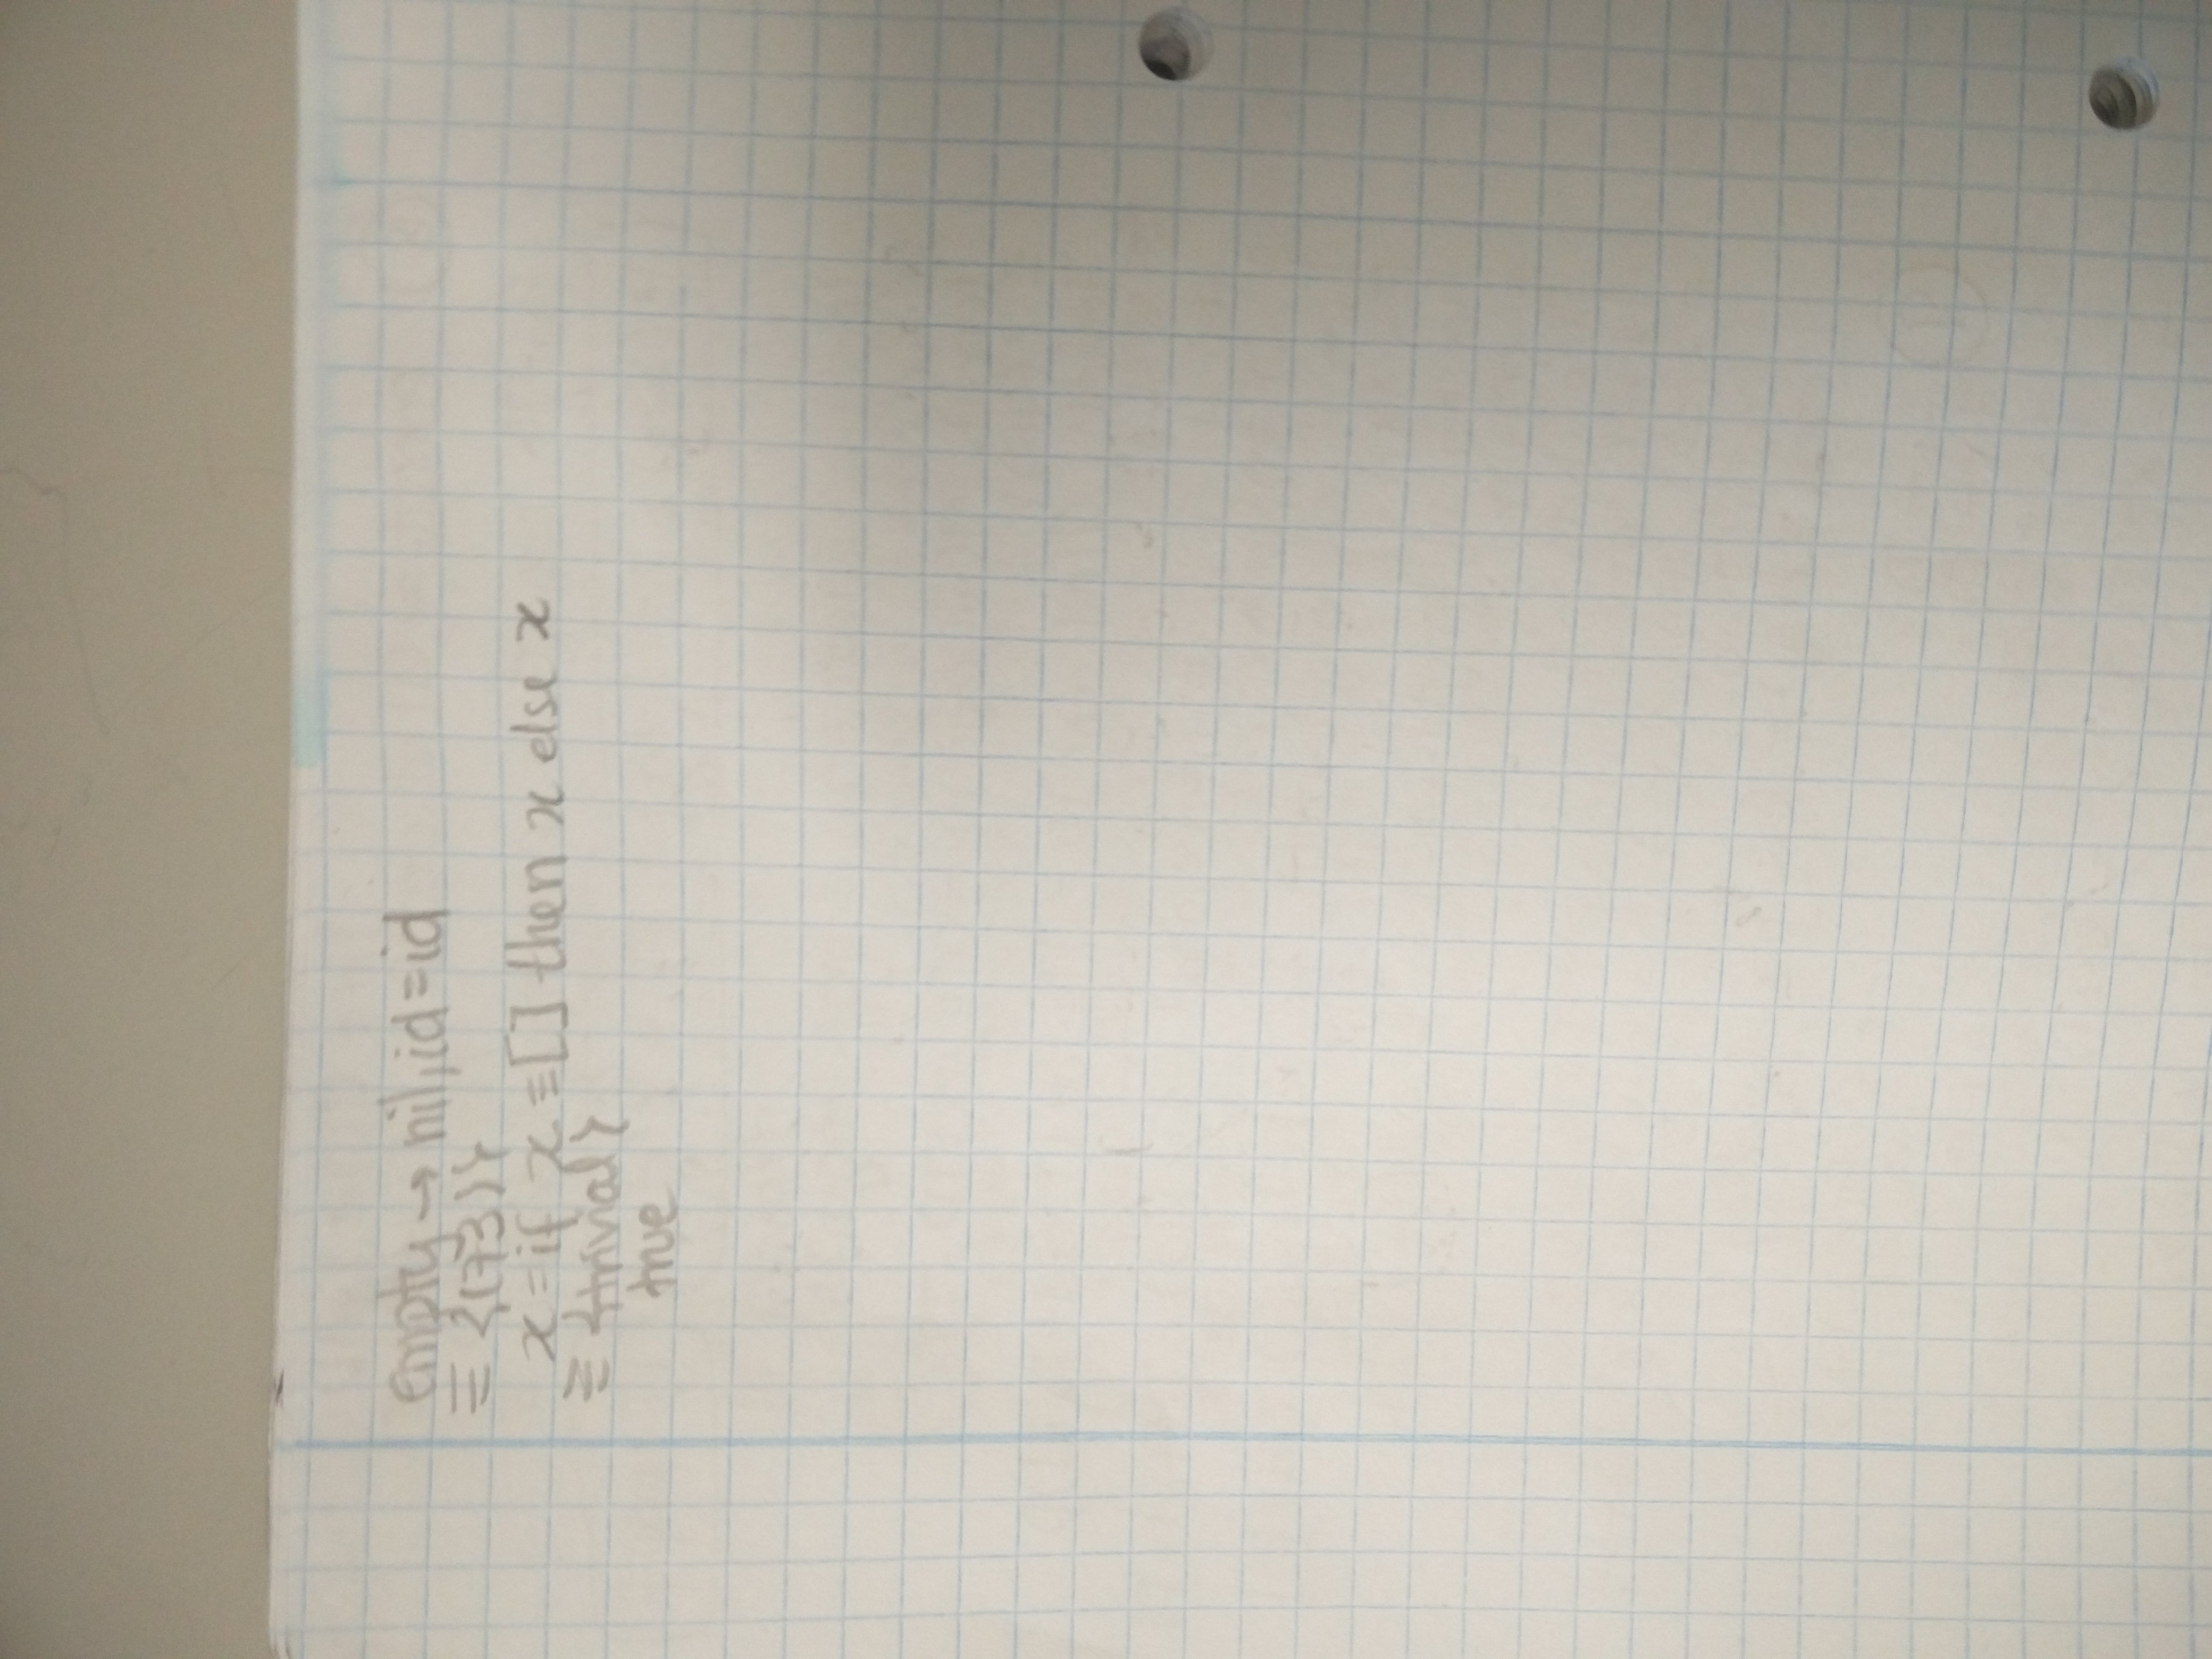 empty → nil, id = id
≡ {(73)}
x = if x ≡ [] then x else x
≡ {trivial}
true